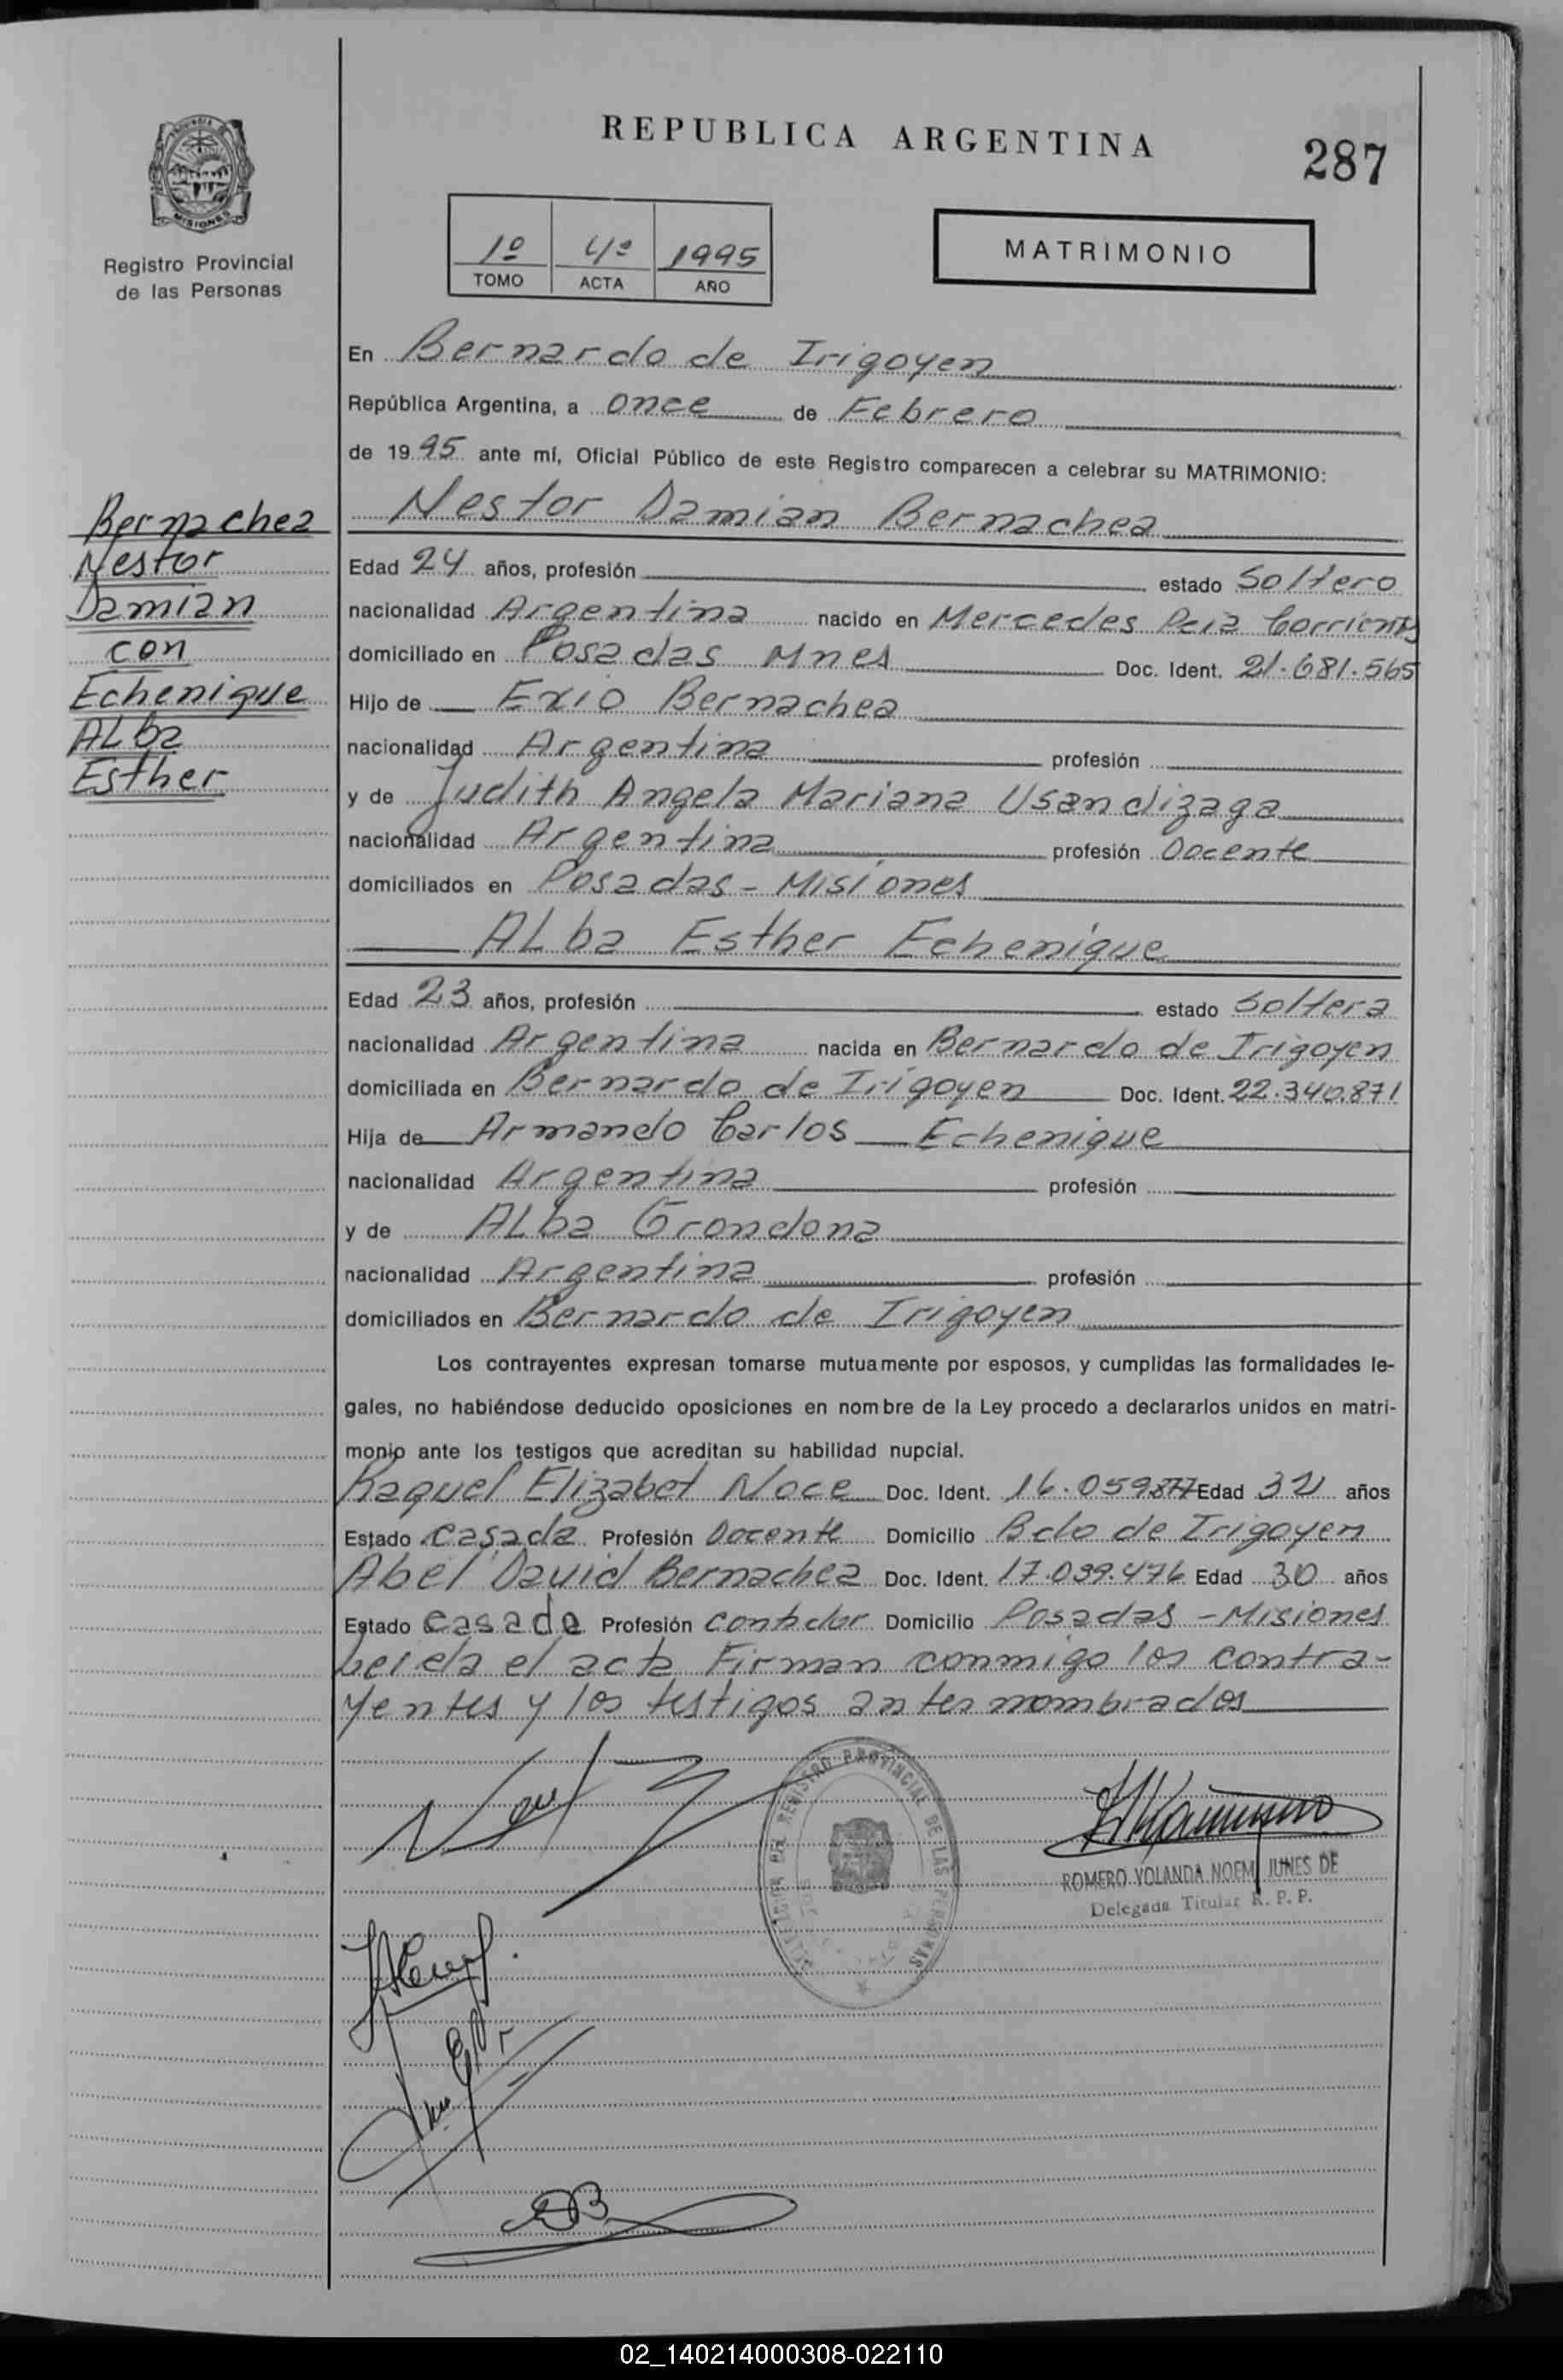 REPUBLICA ARGENTINA
287
PROVINCIA DE
MISIONES
Registro Provincial
de las Personas
1º 4º 1995
TOMO ACTA AÑO
MATRIMONIO
En Bernardo de Irigoyen
República Argentina, a once de Febrero
de 1995 ante mí, Oficial Público de este Registro comparecen a celebrar su MATRIMONIO:
Nestor Damian Bernachea
Bernachea
Nestor
Damian
con
Echenique
ALba
Esther
Edad 24 años, profesión estado Soltero
nacionalidad Argentina nacido en Mercedes Pcia Corrientes
domiciliado en Posadas Mnes Doc. Ident. 21.681.565
Hijo de Exio Bernachea
nacionalidad Argentina profesión
y de Judith Angela Mariana Usandizaga
nacionalidad Argentina profesión Docente
domiciliados en Posadas - Misiones
ALba Esther Echenique
Edad 23 años, profesión estado Soltera
nacionalidad Argentina nacida en Bernardo de Irigoyen
domiciliada en Bernardo de Irigoyen Doc. Ident. 22.340.871
Hija de Armando Carlos Echenique
nacionalidad Argentina profesión
y de ALba Grondona
nacionalidad Argentina profesión
domiciliados en Bernardo de Irigoyen
Los contrayentes expresan tomarse mutuamente por esposos, y cumplidas las formalidades le-
gales, no habiéndose deducido oposiciones en nombre de la Ley procedo a declararlos unidos en matri-
monio ante los testigos que acreditan su habilidad nupcial.
Raquel Elizabet Noce Doc. Ident. 16.059.877 Edad 32 años
Estado casada Profesión Docente Domicilio Bdo de Irigoyen
Abel David Bernachea Doc. Ident. 17.039.476 Edad 30 años
Estado casado Profesión contador Domicilio Posadas - Misiones
Leida el acta Firman conmigo los contra-
yentes y los testigos antes nombrados
DEL REGISTRO PROVINCIAL DE LAS PERSONAS
ROMERO YOLANDA NOEMI JUNES DE
Delegada Titular R. P. P.
02_140214000308-022110